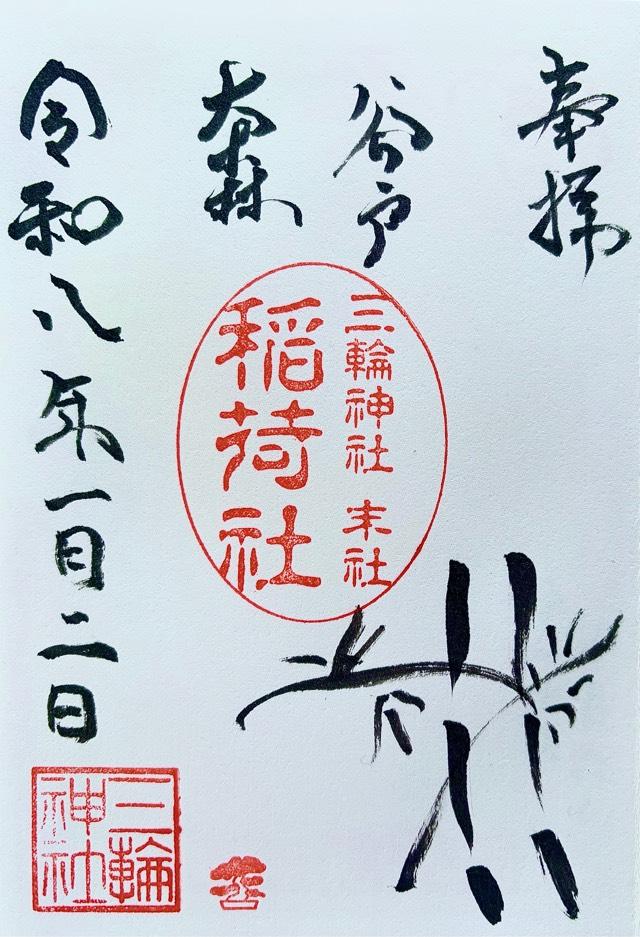 奉拝
谷戸
大森
三輪神社 末社
稲荷社
令和八年一月二日
三輪神社